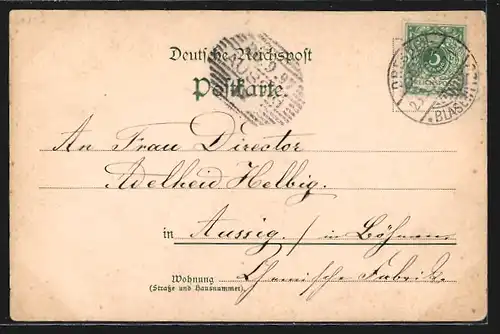 Deutsche Reichspost
Postkarte.
5
DRESDEN
BLASEWITZ
An Frau Director
Adelheid Helbig.
in Aussig. / in Böhmen
Wohnung Chemische Fabrik.
(Straße und Hausnummer)